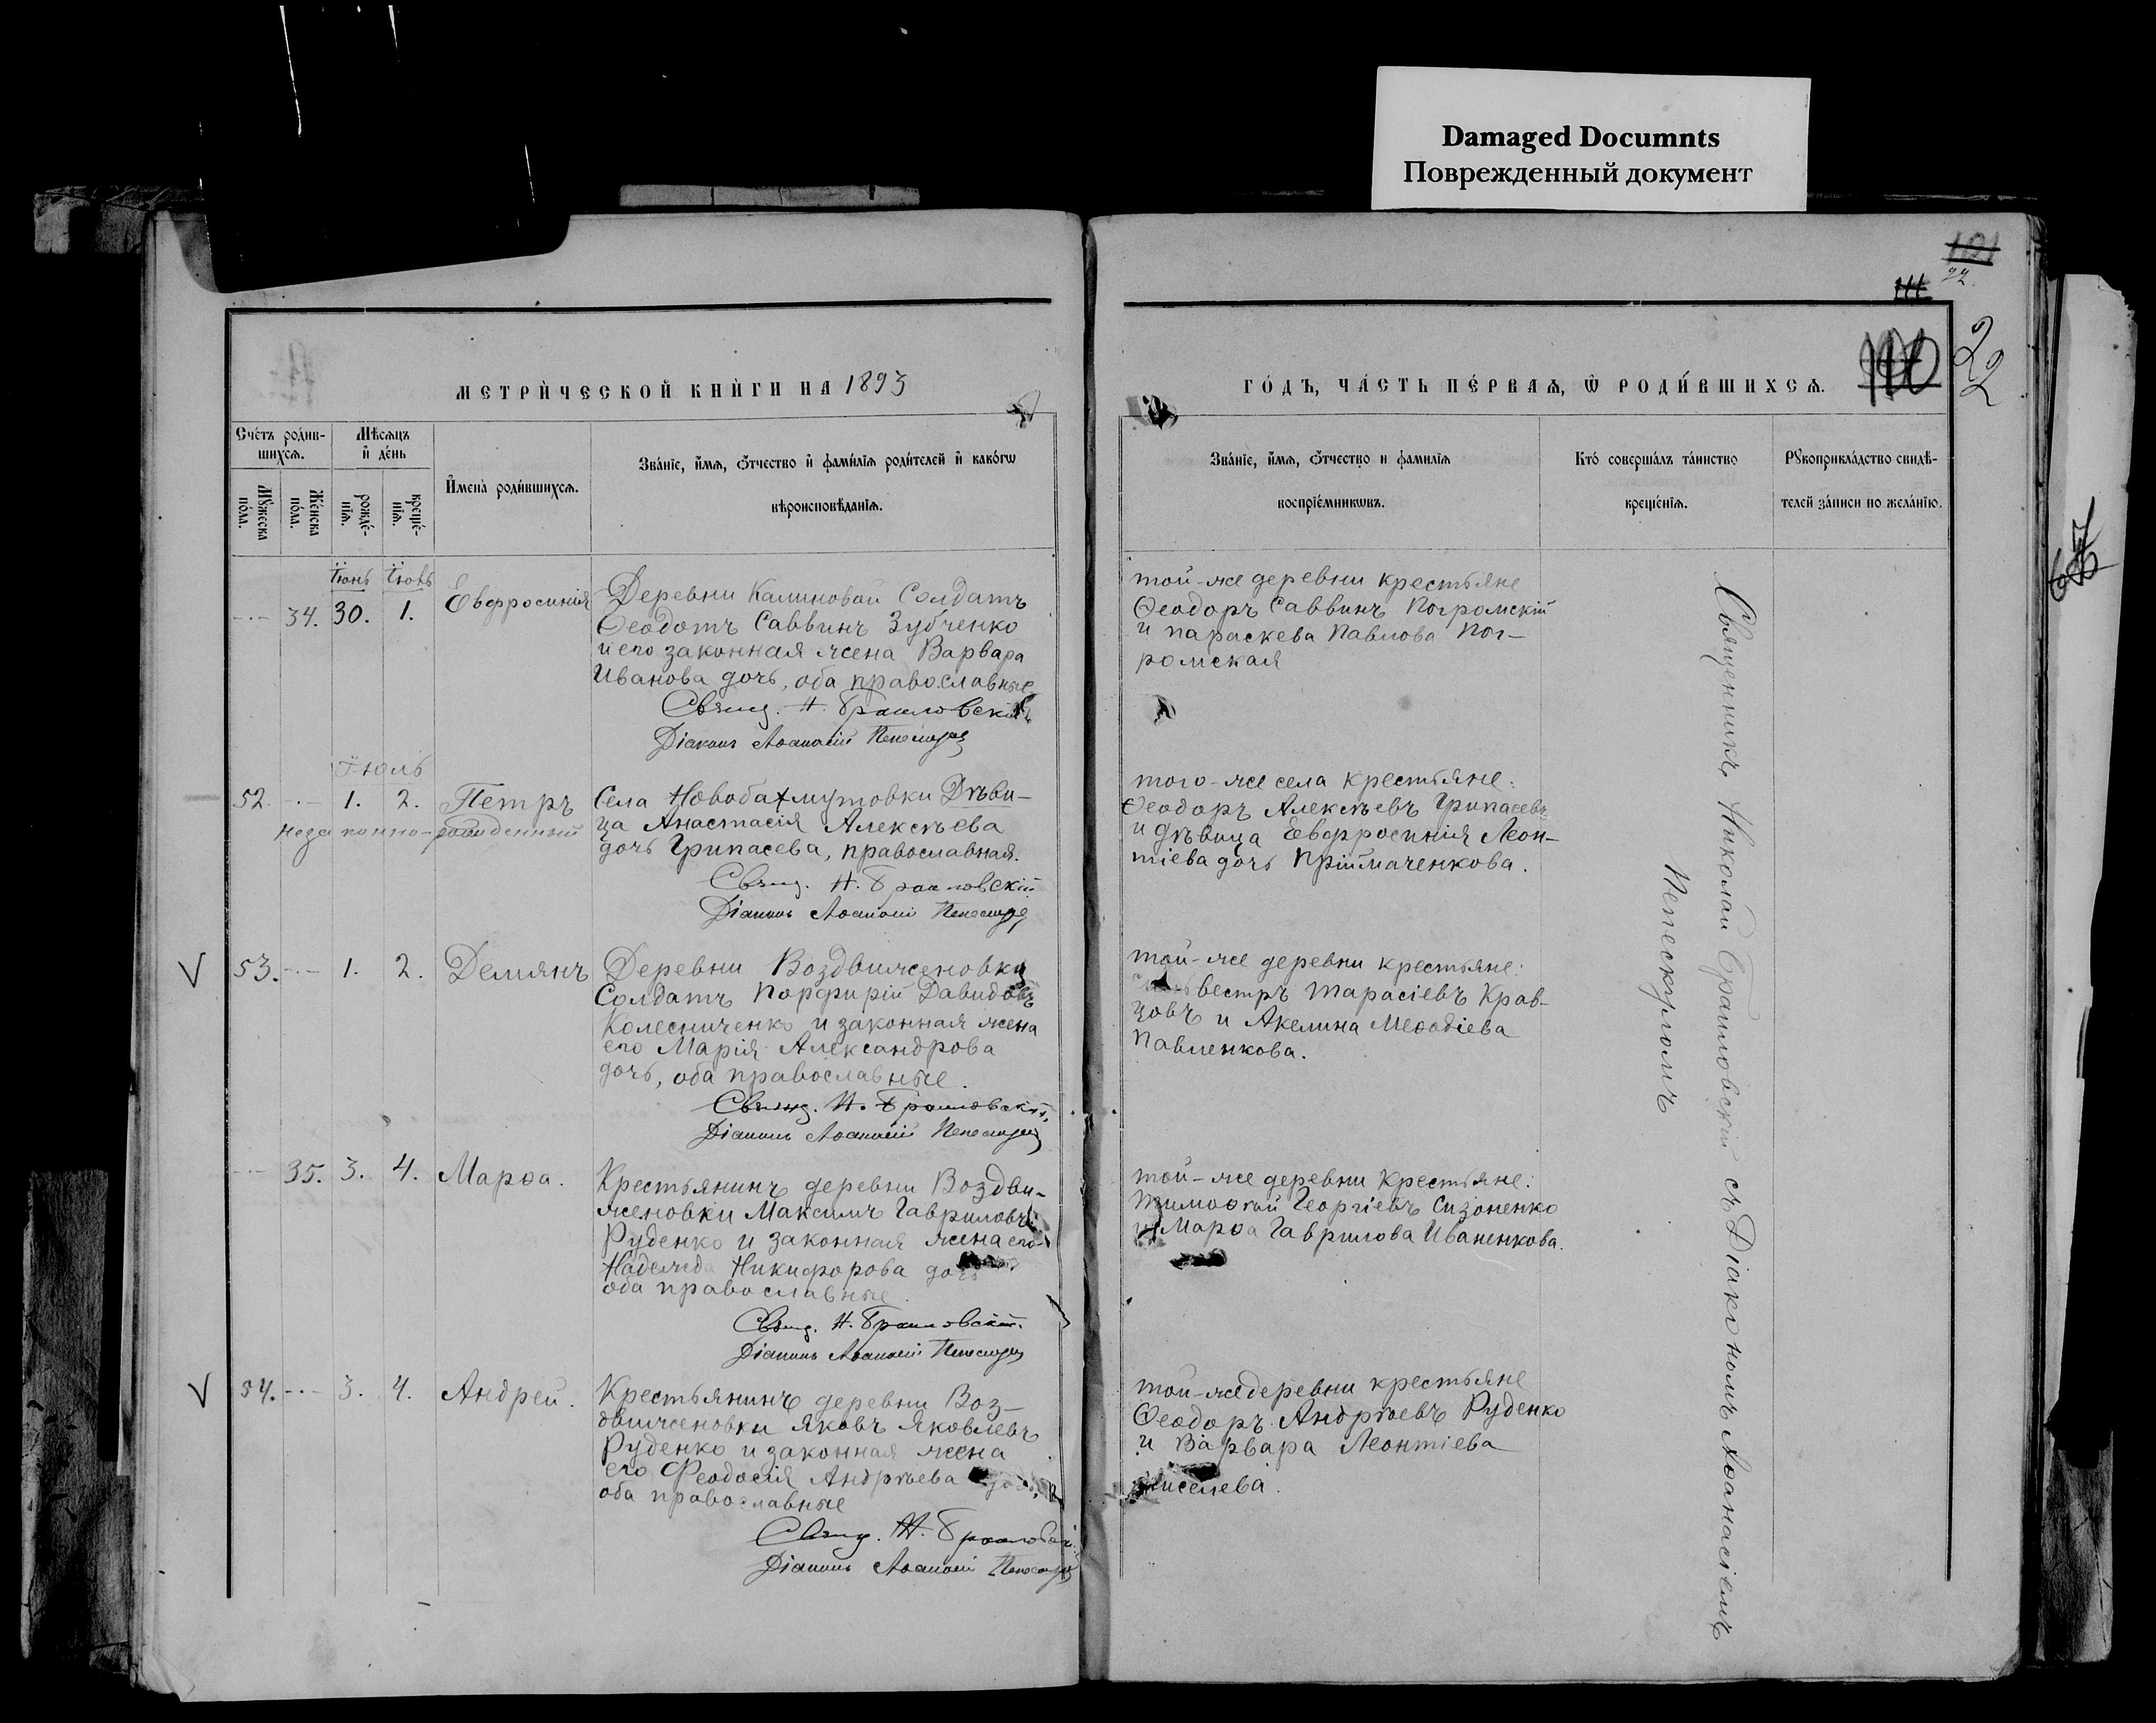 Damaged Documnts
Поврежденный документ
22.
22
МЕТРИ́ЧЕСКОЙ КНИ́ГИ НА 1893
ГО́ДЪ, ЧА́СТЬ ПЕ́РВАѦ, Ѿ РОДИ́ВШИХСѦ.
Сче́тъ роди́в-
шихсѧ.
Мꙋ́жеска по́ла.
Же́нска по́ла.
Мѣ́сѧцъ
и҆ де́нь
рожде́-
нїѧ.
креще́-
нїѧ.
И҆мена̀ роди́вшихсѧ.
Зва́нїе, и҆́мѧ, ѻ҆́тчество и҆ фамилїѧ роди́телей и҆ како́гѡ
вѣроисповѣ́данїѧ.
Зва́нїе, и҆́мѧ, ѻ҆́тчество и фамилїѧ
воспрїе́мникѡвъ.
Кто́ соверша́лъ та́инство
креще́нїѧ.
Рꙋкоприкла́дство свидѣ́-
телей за́писи по жела́нїю.
Іюнь Іюль
34. 30. 1. Евфросинія
Деревни Калиновой Солдатъ
Ѳеодотъ Саввинъ Зубченко
и его законная жена Варвара
Иванова дочь, оба православные
Свящ. Н. Браиловскій
Діаконъ Аѳанасій
той-же деревни крестьяне
Ѳеодоръ Саввинъ Погромскій
и Параскева Павлова Пог-
ромская
Іюль
52 1. 2. Петръ
незаконно-рожденный
Села Новобахмутовки Дѣви-
ца Анастасія Алексѣева
дочь Грипасева, православная.
Свящ. Н. Браиловскій
Діаконъ Аѳанасій
того-же села крестьяне:
Ѳеодоръ Алексѣевъ Грипасевъ
и дѣвица Евфросинія Леон-
тіева дочь Пріймаченкова.
53. 1. 2. Демянъ
Деревни Воздвиженовки
Солдатъ Порфирій Давидовъ
Колесниченко и законная жена
его Марія Александрова
дочь, оба православные.
Свящ. Н. Браиловскій
Діаконъ Аѳанасій
той-же деревни крестьяне:
вестръ Тарасіевъ Крав-
цовъ и Акелина Меѳодіева
Павленкова.
35. 3. 4. Марѳа.
Крестьянинъ деревни Воздви-
женовки Максимъ Гавриловъ
Руденко и законная жена его
Надежда Никифорова дочь
оба православные.
Свящ. Н. Браиловскій.
Діаконъ Аѳанасій
той-же деревни Крестьяне:
Тимоѳей Георгіевъ Сизоненко
и Марѳа Гаврилова Иваненкова.
54. 3. 4. Андрей.
Крестьянинъ деревни Воз-
движеновки Яковъ Яковлевъ
Руденко и законная жена
его Феодосія Андрѣева
оба православные
Свящ. Н. Браиловскій
Діаконъ Аѳанасій
той-же деревни крестьяне
Ѳеодоръ Андрѣевъ Руденко
и Варвара Леонтіева
Киселева.
Священникъ Николай Браиловскій съ Діакономъ Аѳанасіемъ